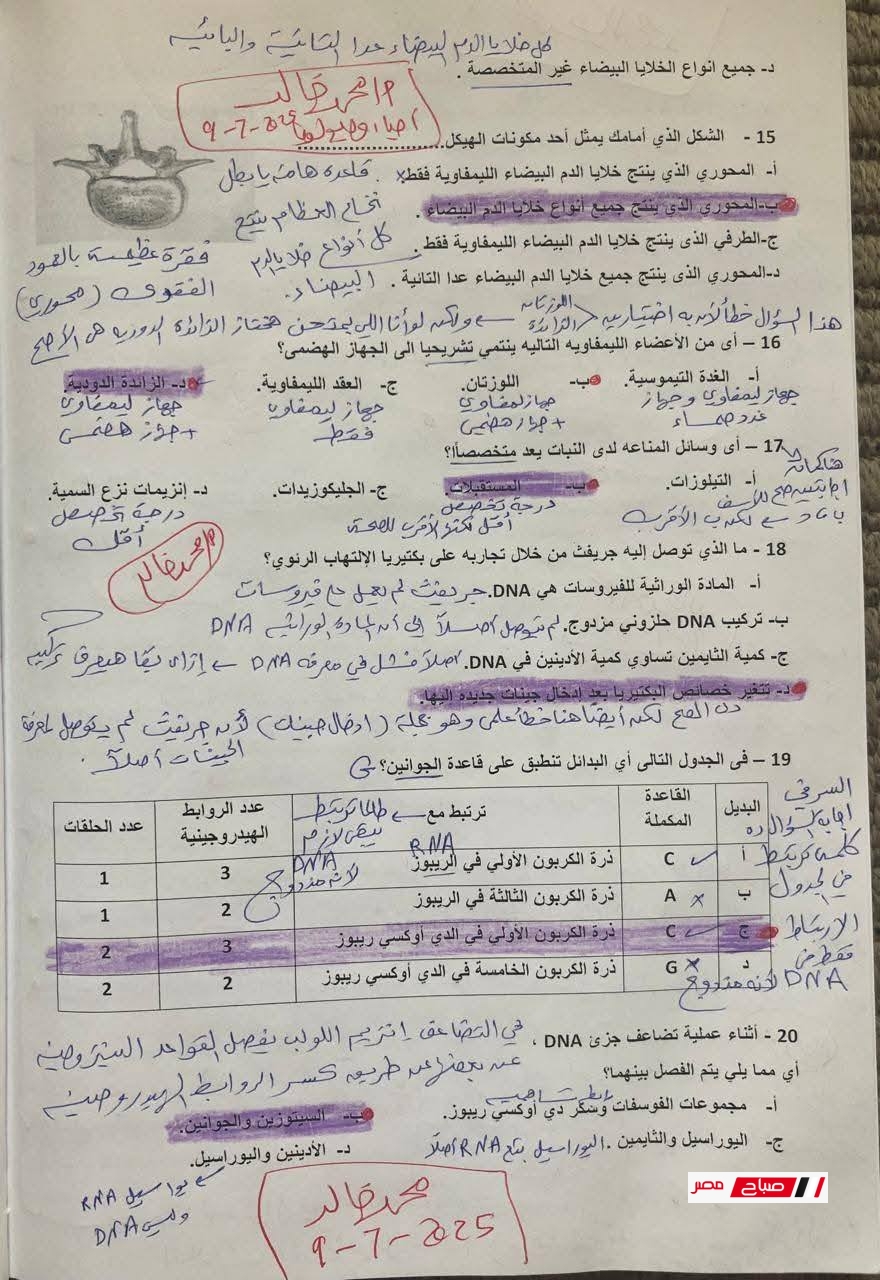 كل خلايا الدم البيضاء عدا التائية والبائية
د- جميع انواع الخلايا البيضاء غير المتخصصة .
م/محمد خالد
9-7-2025
15 - الشكل الذي أمامك يمثل أحد مكونات الهيكل
أ- المحوري الذي ينتج خلايا الدم البيضاء الليمفاوية فقط.
ب-المحوري الذي ينتج جميع أنواع خلايا الدم البيضاء .
ج-الطرفي الذى ينتج خلايا الدم البيضاء الليمفاوية فقط .
د-المحوري الذى ينتج جميع خلايا الدم البيضاء عدا التائية .
قاعدة هامة يا بطل
نخاع العظام ينتج
كل أنواع خلايا الدم
البيضاء.
فقرة عظمية بالعمود
الفقري (محوري)
هذا السؤال خطأ لأن به اختيارين
اللوزتان
الزائدة
ولكن لو أنا اللي بمتحن هختار الزائدة الدودية هي الأصح
16 – أى من الأعضاء الليمفاويه التاليه ينتمي تشريحيا الى الجهاز الهضمى؟
أ- الغدة التيموسية. ب- اللوزتان. ج- العقد الليمفاوية. د- الزائدة الدودية.
جهاز ليمفاوي وجهاز
غدد صماء
جهاز لمفاوي
+ جهاز هضمي
جهاز ليمفاوي
فقط
جهاز ليمفاوي
+ جهاز هضمي
17 – أى وسائل المناعه لدى النبات يعد متخصصاً؟
أ- التيلوزات. ب- المستقبلات. ج- الجليكوزيدات. د- إنزيمات نزع السمية.
هنا كمان
اجابتين صح للأسف
ب أو د لكن ب الأقرب
درجة تخصص
أقل لكنها الأقرب للصحة
درجة تخصص
أقل
محمد خالد
18 - ما الذي توصل إليه جريفث من خلال تجاربه على بكتيريا الإلتهاب الرئوي؟
أ- المادة الوراثية للفيروسات هي DNA. جريفث لم يعمل على فيروسات
ب- تركيب DNA حلزوني مزدوج. لم يتوصل أصلاً إلى أن المادة الوراثية DNA
ج- كمية الثايمين تساوي كمية الأدينين في DNA. أصلاً فشل في معرفة DNA ← إزاى بقا هيعرف تركيبه
د- تتغير خصائص البكتيريا بعد إدخال جينات جديده إليها.
دي الصح لكن أيضا هنا خطأ علمي وهو جملة (ادخال جينات) لأن جريفث لم يتوصل لمعرفة
الجينات أصلاً.
19 – فى الجدول التالى أي البدائل تنطبق على قاعدة الجوانين؟
البديل القاعدة المكملة ترتبط مع عدد الروابط الهيدروجينية عدد الحلقات
طالما ترتبط
يبقى لازم
RNA
DNA
لأنه مزدوج
أ C ذرة الكربون الأولي في الريبوز 3 1
ب A ذرة الكربون الثالثة في الريبوز 2 1
ج C ذرة الكربون الأولي في الدي أوكسي ريبوز 3 2
د G ذرة الكربون الخامسة في الدي أوكسي ريبوز 2 2
السر في
اجابة السؤال ده
كلمة ترتبط
في الجدول
الارتباط
فقط في
DNA لأنه مزدوج
20 - أثناء عملية تضاعف جزئ DNA ،
أي مما يلي يتم الفصل بينهما؟
في التضاعف إنزيم اللولب يفصل القواعد النيتروجينية
عن بعضها عن طريق كسر الروابط الهيدروجينية
أ- مجموعات الفوسفات وسكر دي أوكسي ريبوز. ب- السيتوزين والجوانين.
رابطة تساهمية
ج- اليوراسيل والثايمين . اليوراسيل بتاع RNA أصلاً د- الأدينين واليوراسيل.
يوراسيل RNA
وليس DNA
محمد خالد
9-7-2025
صباح مصر